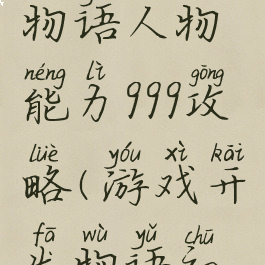 物语人物
néng lì gōng
能力999攻
lüè yóu xì kāi
略(游戏开
fā wù yǔ chū
发物语初